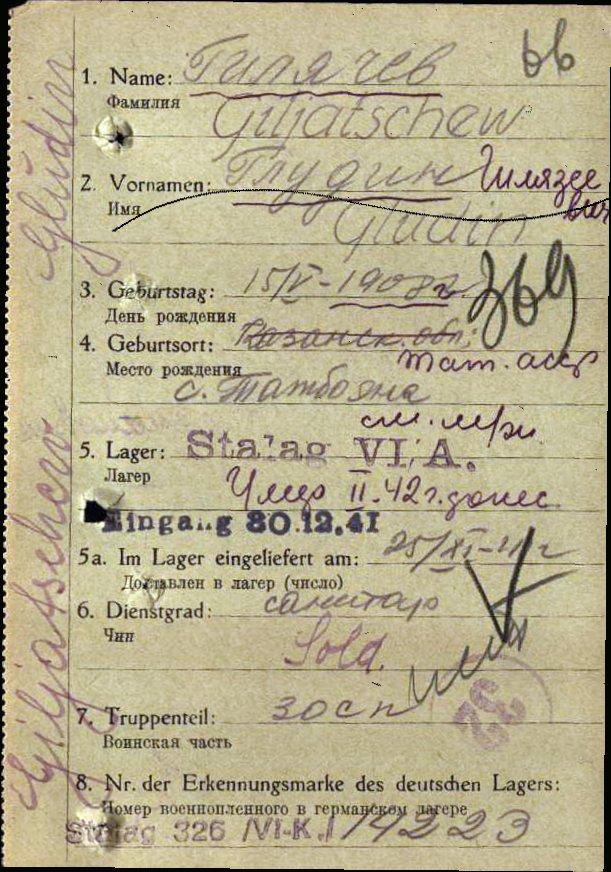 66
1. Name: Гилячев
Фамилия
Giljatschew
2. Vornamen: Глудин Гилязее
Имя
вич
Gludin
3. Geburtstag: 15/V-1908г
День рождения
369
4. Geburtsort: Казанск. обл.
Тат. асср
Место рождения
с. Татбояна
см. мрн.
5. Lager: Stalag VI/A.
Лагер
Умер II.42г. донес.
Eingang 30.12.41
5a. Im Lager eingeliefert am: 25/XI-41г
Доставлен в лагер (число)
6. Dienstgrad: санитар
Чин
Sold.
7. Truppenteil: 30сп
32
Воинская часть
8. Nr. der Erkennungsmarke des deutschen Lagers:
Номер военнопленного в германском лагере
Stalag 326 /VI-K./ 14223
Giljatschew Gludin